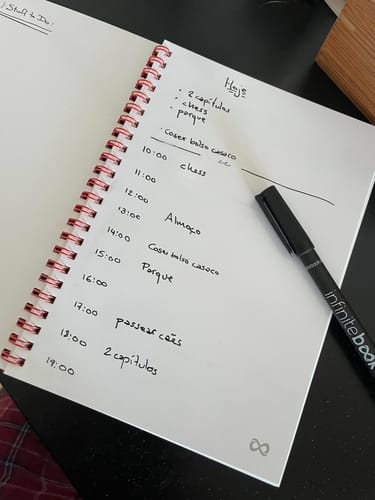 Stuff to Do:
Hoje
• 2 capítulos
• chess
• parque
• Coser bolso casaco
10:00 chess
11:00
12:00
13:00 Almoço
14:00 Coser bolso casaco
15:00 Parque
16:00
17:00 passear cães
18:00 2 capítulos
19:00
infinitebook